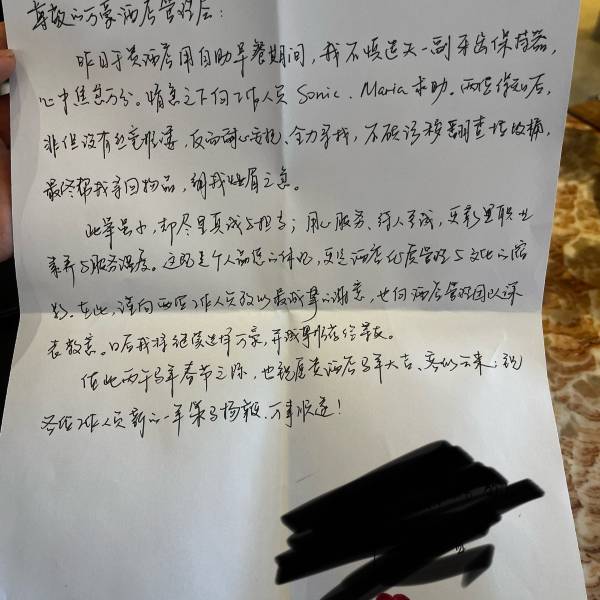 尊敬的万豪酒店管理层:
昨日于贵酒店用自助早餐期间,我不慎遗失一副牙齿保持器,
心中焦急万分。情急之下向工作人员Sonic、Maria求助。两位得知后,
非但没有丝毫推诿,反而耐心安抚、全力寻找,不顾 翻查垃圾桶,
最终帮我寻回物品,解我燃眉之急。
此举虽小,却尽显真诚与担当;用心服务、待人至诚,更彰显职业
素养与服务温度。这既是个人品德的体现,更是酒店优质管理与文化的缩
影。在此,谨向两位工作人员致以最诚挚的谢意,也向酒店管理团队深
表敬意。日后我将继续选择万豪,并诚挚推荐给亲友。
值此丙午马年春节之际,也祝愿贵酒店马年大吉、客似云来;祝
各位工作人员新的一年策马扬鞭、万事顺遂!